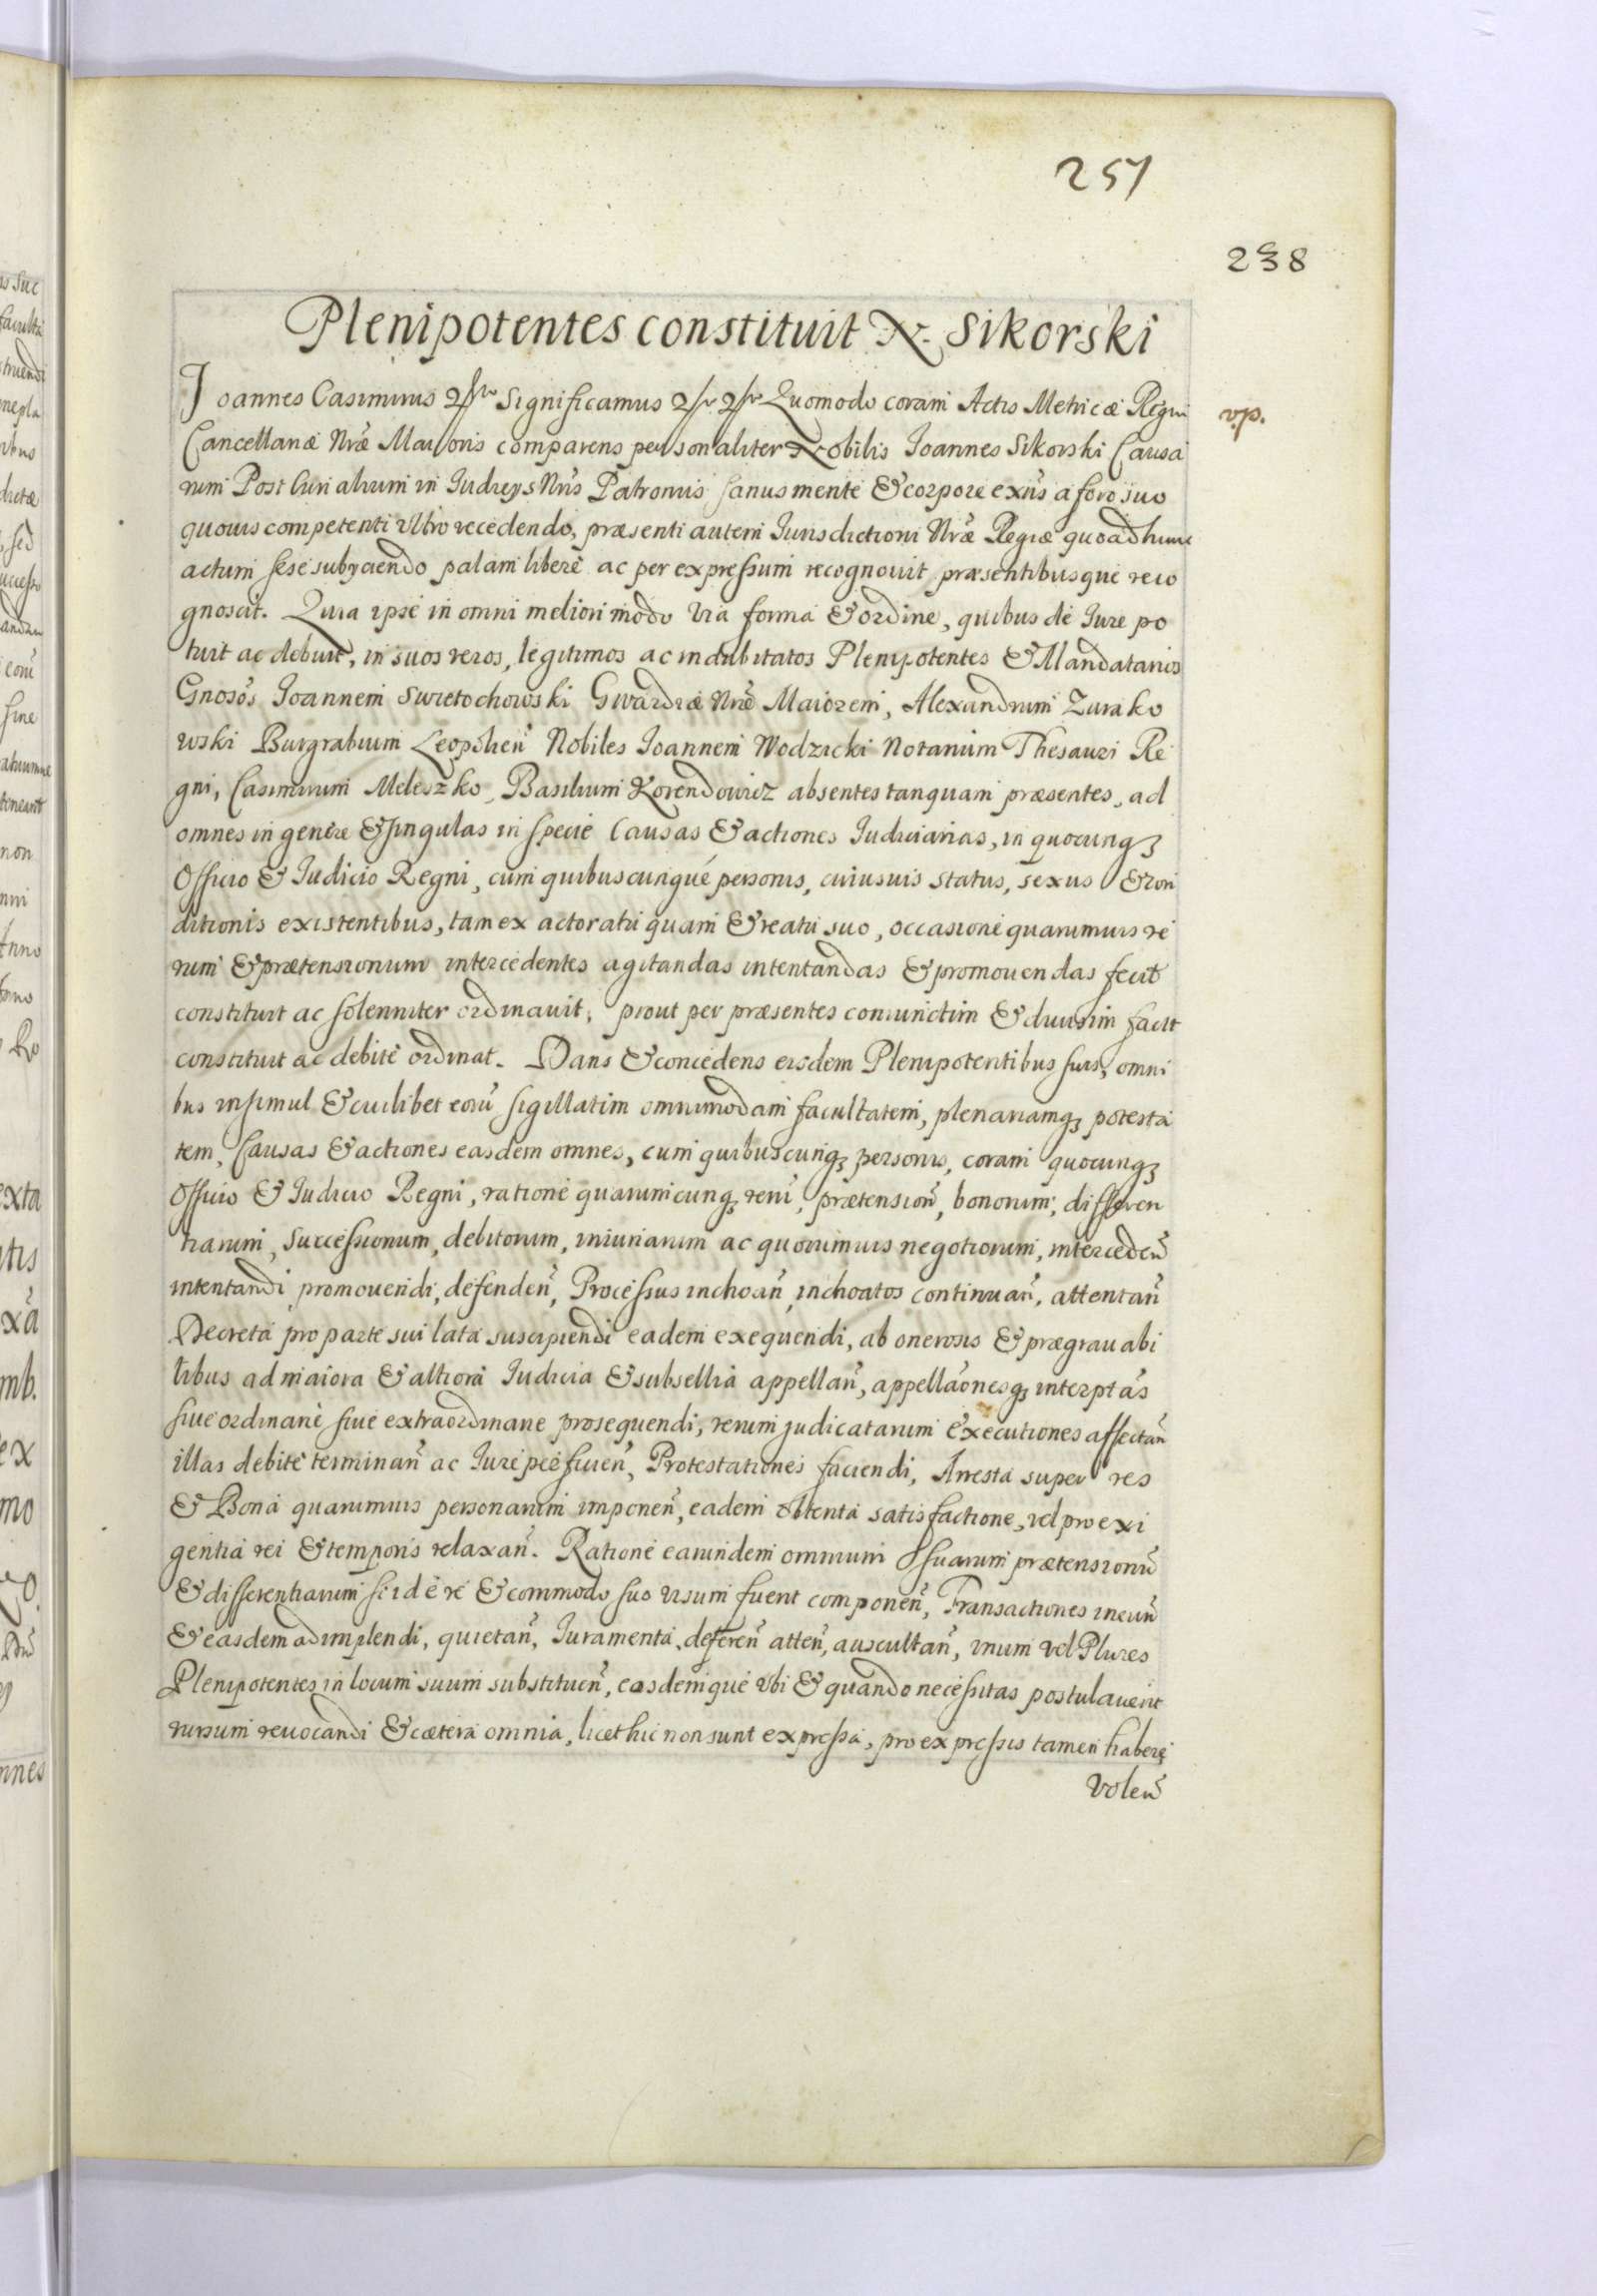 257
238
Plenipotentes constituit N. Sikorski
Joannes Casimirus Significamus Quomodo coram Actis Metricæ Regni
vip.
Cancellariæ Nræ Maioris comparens personaliter Nobilis Ioannes Sikorski Causa
rum Post Curialium in Iudicijs Nris Patronus sanus mente & corpore exñs a foro suo
quouis competenti vltro recedendo, præsenti autem Iurisdictioni Nræ Regiæ quoad hunc
actum sese subijciendo palam libere ac per expressum recognouit præsentibusque reco
gnoscit. Quia ipse in omni meliori modo via forma & ordine, quibus de Iure po
tuit ac debuit, in suos veros, legitimos ac indubitatos Plenipotentes & Mandatarios
Gnosos Ioannem Swietochowski Gwardiæ Nræ Maiorem, Alexandrum Zurako
wski Burgrabium Leopolien Nobiles Ioannem Wodzicki Notarium Thesauri Re
gni, Casimirum Meleszko, Basilium Korendowicz absentes tanquam præsentes, ad
omnes in genere & singulas in specie Causas & actiones Iudiciarias, in quocunq3
Officio & Iudicio Regni, cum quibuscunque personis, cuiusuis status, sexus & con
ditionis existentibus, tam ex actoratu quam & reatu suo, occasione quarumuis re
rum & prætensionum intercedentes agitandas intentandas & promouendas fecit
constituit ac solenniter ordinauit, prout per præsentes coniunctim & diuisim facit
constituit ac debite ordinat. Dans & concedens eisdem Plenipotentibus suis, omni
bus insimul & cuilibet eorũ sigillatim omnimodam facultatem, plenariamq3 potesta
tem, Causas & actiones easdem omnes, cum quibuscunq3 personis, coram quocunq3
Officio & Iudicio Regni, ratione quarumcunq3 rerũ, prætensioñ, bonorum, differen
tiarum, successionum, debitorum, iniuriarum ac quorumuis negotiorum, intercedeñ
intentandi, promouendi, defendeñ, Processus inchoañ, inchoatos continuañ, attentañ
Decreta pro parte sui lata suscipiendi eadem exequendi, ab onerosis & prægrauabi
libus ad maiora & altiora Iudicia & subsellia appellañ, appellãonesq3 interptãs
siue ordinarie siue extraordinarie prosequendi, rerum judicatarum executiones affectañ
illas debite terminañ ac Iure Protestationes faciendi, Arresta super res
& Bona quarumuis personarum imponeñ, eadem obtenta satisfactione, vel pro exi
gentia rei & temporis relaxañ. Ratione earundem omnium suarum prætensionũ
& differentiarum si id e re & commodo suo visum fuerit componeñ, Transactiones ineuñ
& easdem adimplendi, quietañ, Iuramenta, defereñ atteñ, auscultañ, vnum vel Plures
Plenipotentes in locum suum substitueñ, eosdemque vbi & quando necessitas postulauerit
rursum reuocandi & cætera omnia, licet hic non sunt expressa, pro expressis tamen habere
Voleñ